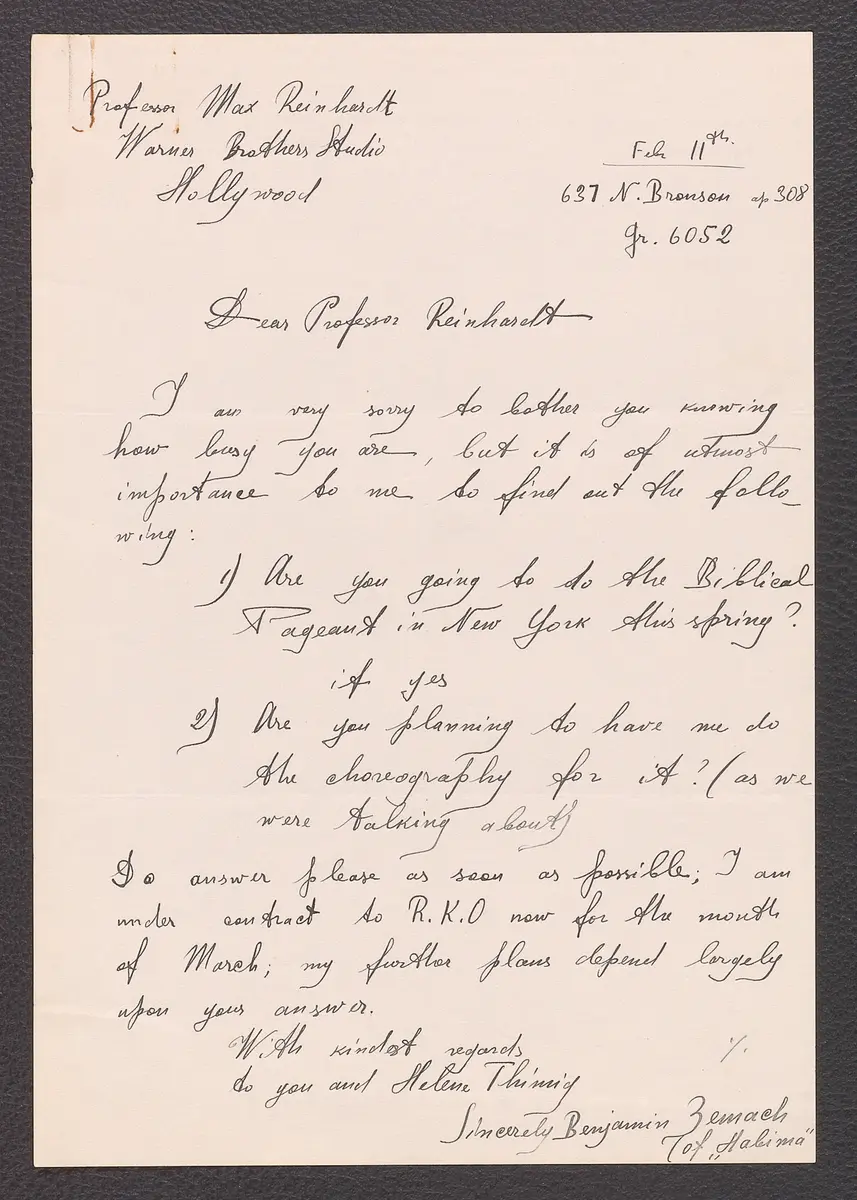 Professor Max Reinhardt
Warner Brothers Studio
Hollywood
Feb 11th.
637 N. Bronson ap 308
Gr. 6052
Dear Professor Reinhardt
I am very sorry to bother you knowing
how busy you are, but it is of utmost
importance to me to find out the follo-
wing:
1) Are you going to do the Biblical
Pageant in New York this spring?
if yes
2) Are you planning to have me do
the choreography for it? (as we
were talking about)
Do answer please as soon as possible; I am
under contract to R.K.O now for the month
of March; my further plans depend largely
upon your answer.
With kindest regards
to you and Helene Thimig
·/.
Sincerely Benjamin Zemach
(of „Habima"